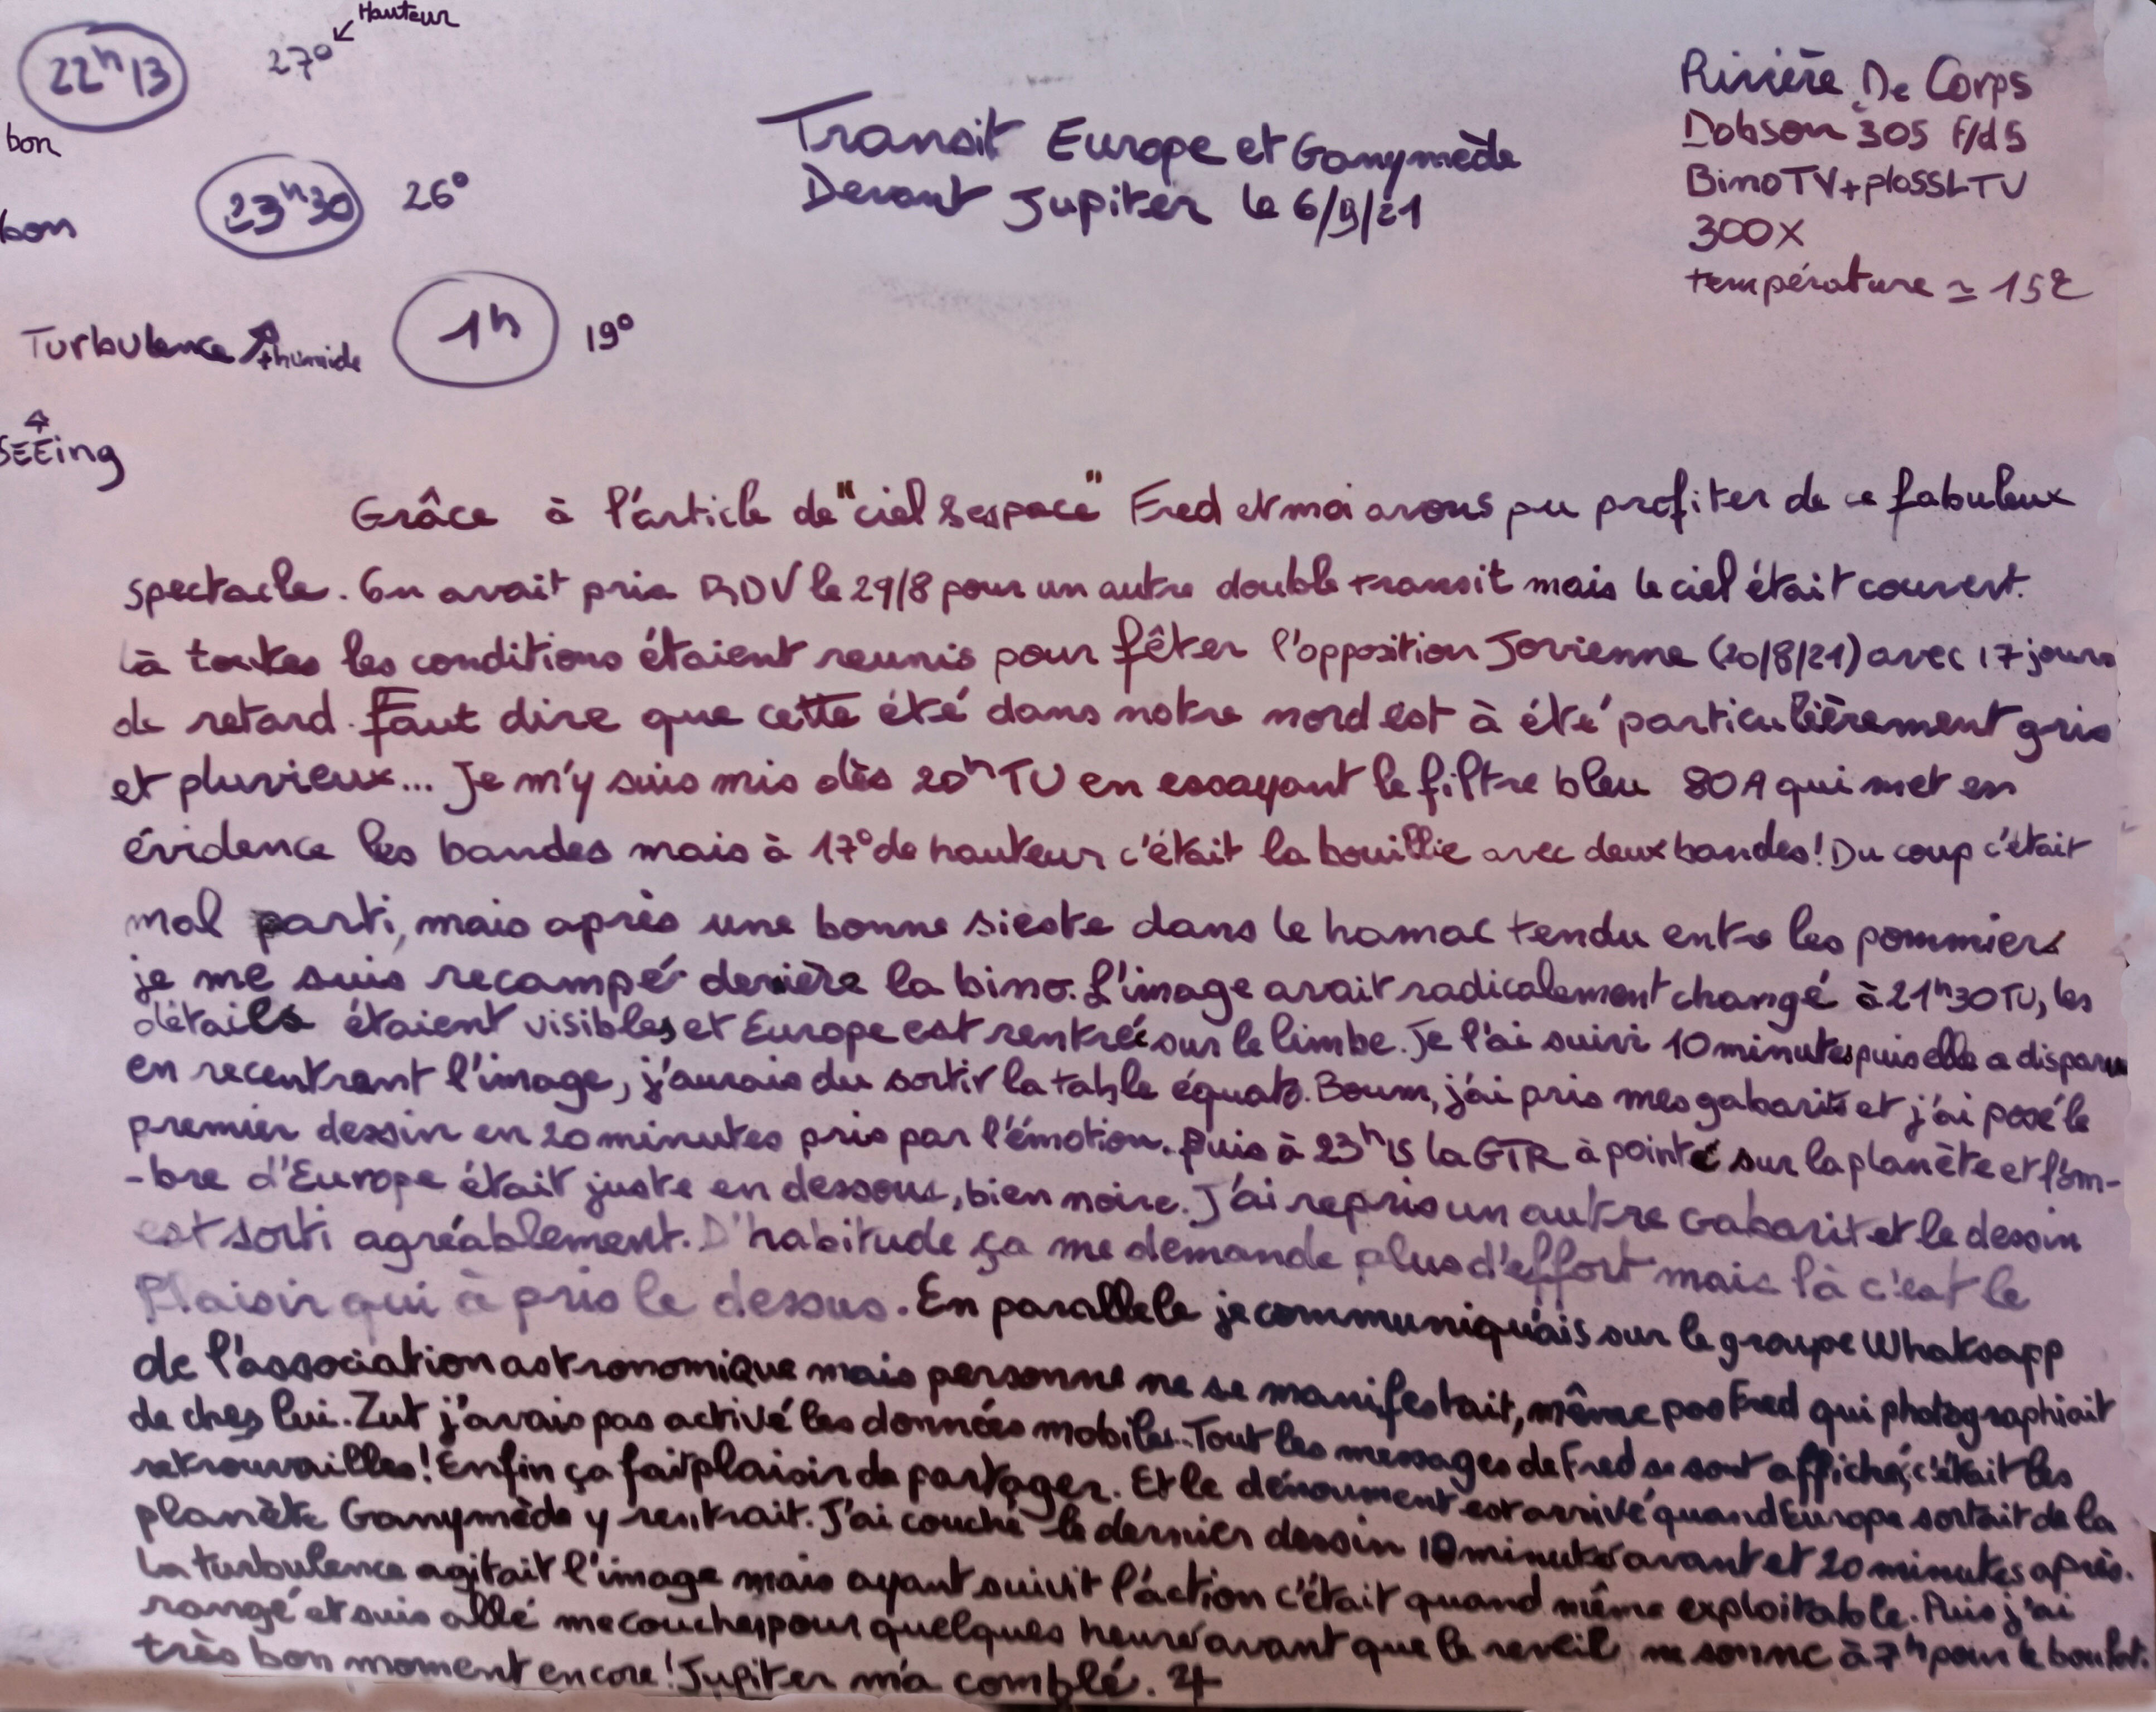 Hauteur
22h13 27°
bon
23h30 26°
bon
Turbulence + humide 1h 19°
SEEing
Transit Europe et Ganymède
Devant Jupiter le 6/9/21
Rivière De Corps
Dobson 305 F/d5
BinoTV+plossLTV
300X
température ≃ 15°C
Grâce à l'article de "ciel & espace" Fred et moi avons pu profiter de ce fabuleux
spectacle. On avait pris RDV le 29/8 pour un autre double transit mais le ciel était couvert.
là toutes les conditions étaient reunis pour fêter l'opposition Jovienne (20/8/21) avec 17 jours
de retard. Faut dire que cette été dans notre nord est à été particulièrement gris
et pluvieux... Je m'y suis mis dès 20h TU en essayant le filtre bleu 80A qui met en
évidence les bandes mais à 17° de hauteur c'était la bouillie avec deux bandes! Du coup c'était
mal parti, mais après une bonne sieste dans le hamac tendu entre les pommiers
je me suis recampé derière la bino. L'image avait radicalement changé à 21h30TU, les
détails étaient visibles et Europe est rentrée sur le limbe. Je l'ai suivi 10 minutes puis elle a disparu
en recentrant l'image, j'aurais du sortir la table équato. Boum, j'ai pris mes gabarits et j'ai posé le
premier dessin en 20 minutes pris par l'émotion. Puis à 23h15 la GTR à pointé sur la planète et l'om-
-bre d'Europe était juste en dessous, bien noire. J'ai repris un autre Gabarit et le dessin
est sorti agréablement. D'habitude ça me demande plus d'effort mais là c'est le
Plaisir qui à pris le dessus. En parallele je communiquais sur le groupe Whatsapp
de l'association astronomique mais personne ne se manifestait, même pas Fred qui photographiait
de chez lui. Zut j'avais pas activé les données mobiles.. Tout les messages de Fred se sont affiché, c'était les
retrouvailles! Enfin ça fait plaisir de partager. Et le dénoument est arrivé quand Europe sortait de la
planète Ganymède y rentrait. J'ai couché le dernier dessin 10 minutes avant et 20 minutes après.
La turbulence agitait l'image mais ayant suivit l'action c'était quand même exploitable. Puis j'ai
rangé et suis allé me coucher pour quelques heure avant que le reveil ne sonne à 7h pour le boulot.
très bon moment encore! Jupiter m'a comblé. ♃